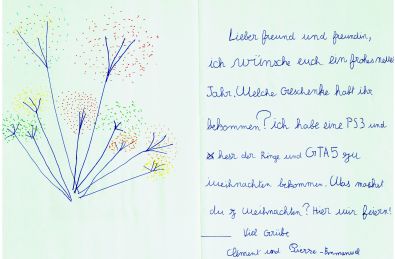 Lieber freund und freundin,
ich wünsche euch ein frohes neues
Jahr. Welche Geschenke habt ihr
bekommen? ich habe eine PS3 und
herr der Ringe und GTA5 zu
weihnachten bekommen. Was machst
du z weihnachten? Hier wir feiern!
Viel Grübe
Clement und Pierre-Emmanuel